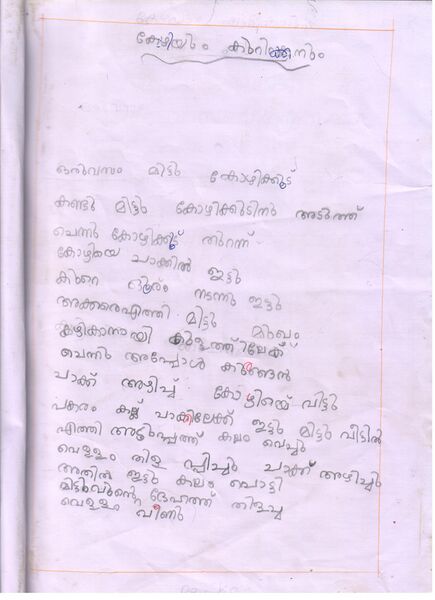 കോഴിയും കുറിക്കനും
ഒരുവസം മിട്ടു കോഴിക്കൂട്
കണ്ടു മിട്ടു കോഴിക്കുടിനു അടുത്ത്
ചെന്നു കോഴിക്കൂട് തുറന്ന്
കോഴിയെ ചാക്കിൽ ഇട്ടു
കുറെ ദൂരം നടന്നു ഇട്ടു
അക്കരെഎത്തി മിട്ടു മുഖം
കഴികാനായി കുളത്തിലേക്ക്
ചെന്നു അപ്പോൾ കുറുക്കൻ
ചാക്ക് അഴിച്ച് കോഴിയെ വിട്ടു
പകരം കല്ല് ചാക്കിലേക്ക് ഇട്ടു മിട്ടു വീട്ടിൽ
എത്തി അടുപ്പത്ത് കലം വെച്ചു
വെള്ളം തിള പ്പിച്ചു ചാക്ക് അഴിച്ചു
അതിൽ ഇട്ടു കലം പൊട്ടി
മിട്ടുവിൻ്റെ ദേഹത്ത് തിളച്ച
വെള്ളം വീണു